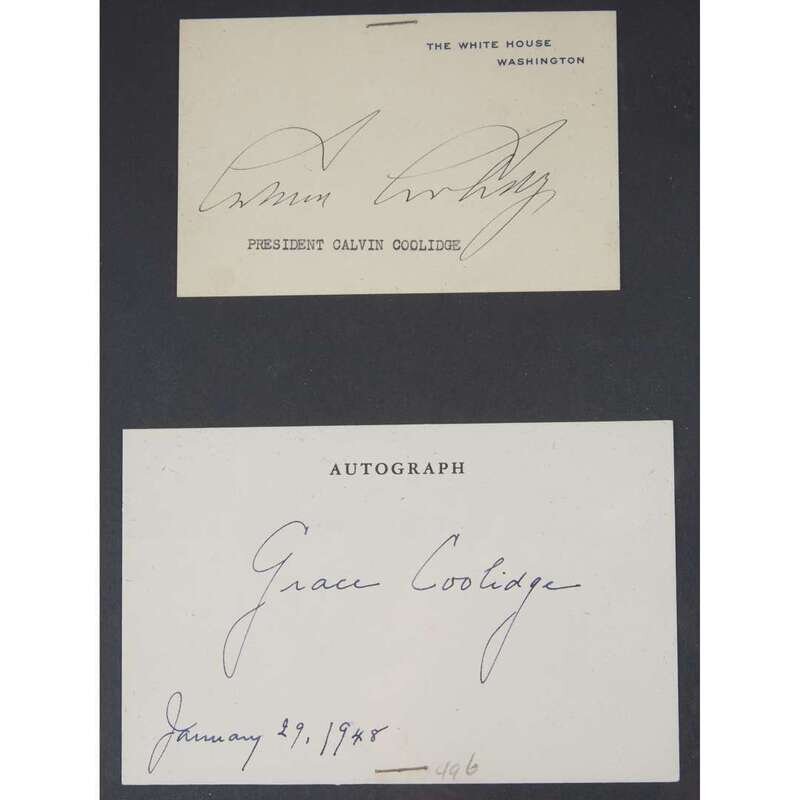 THE WHITE HOUSE
WASHINGTON
Calvin Coolidge
PRESIDENT CALVIN COOLIDGE
AUTOGRAPH
Grace Coolidge
January 29, 1948
496